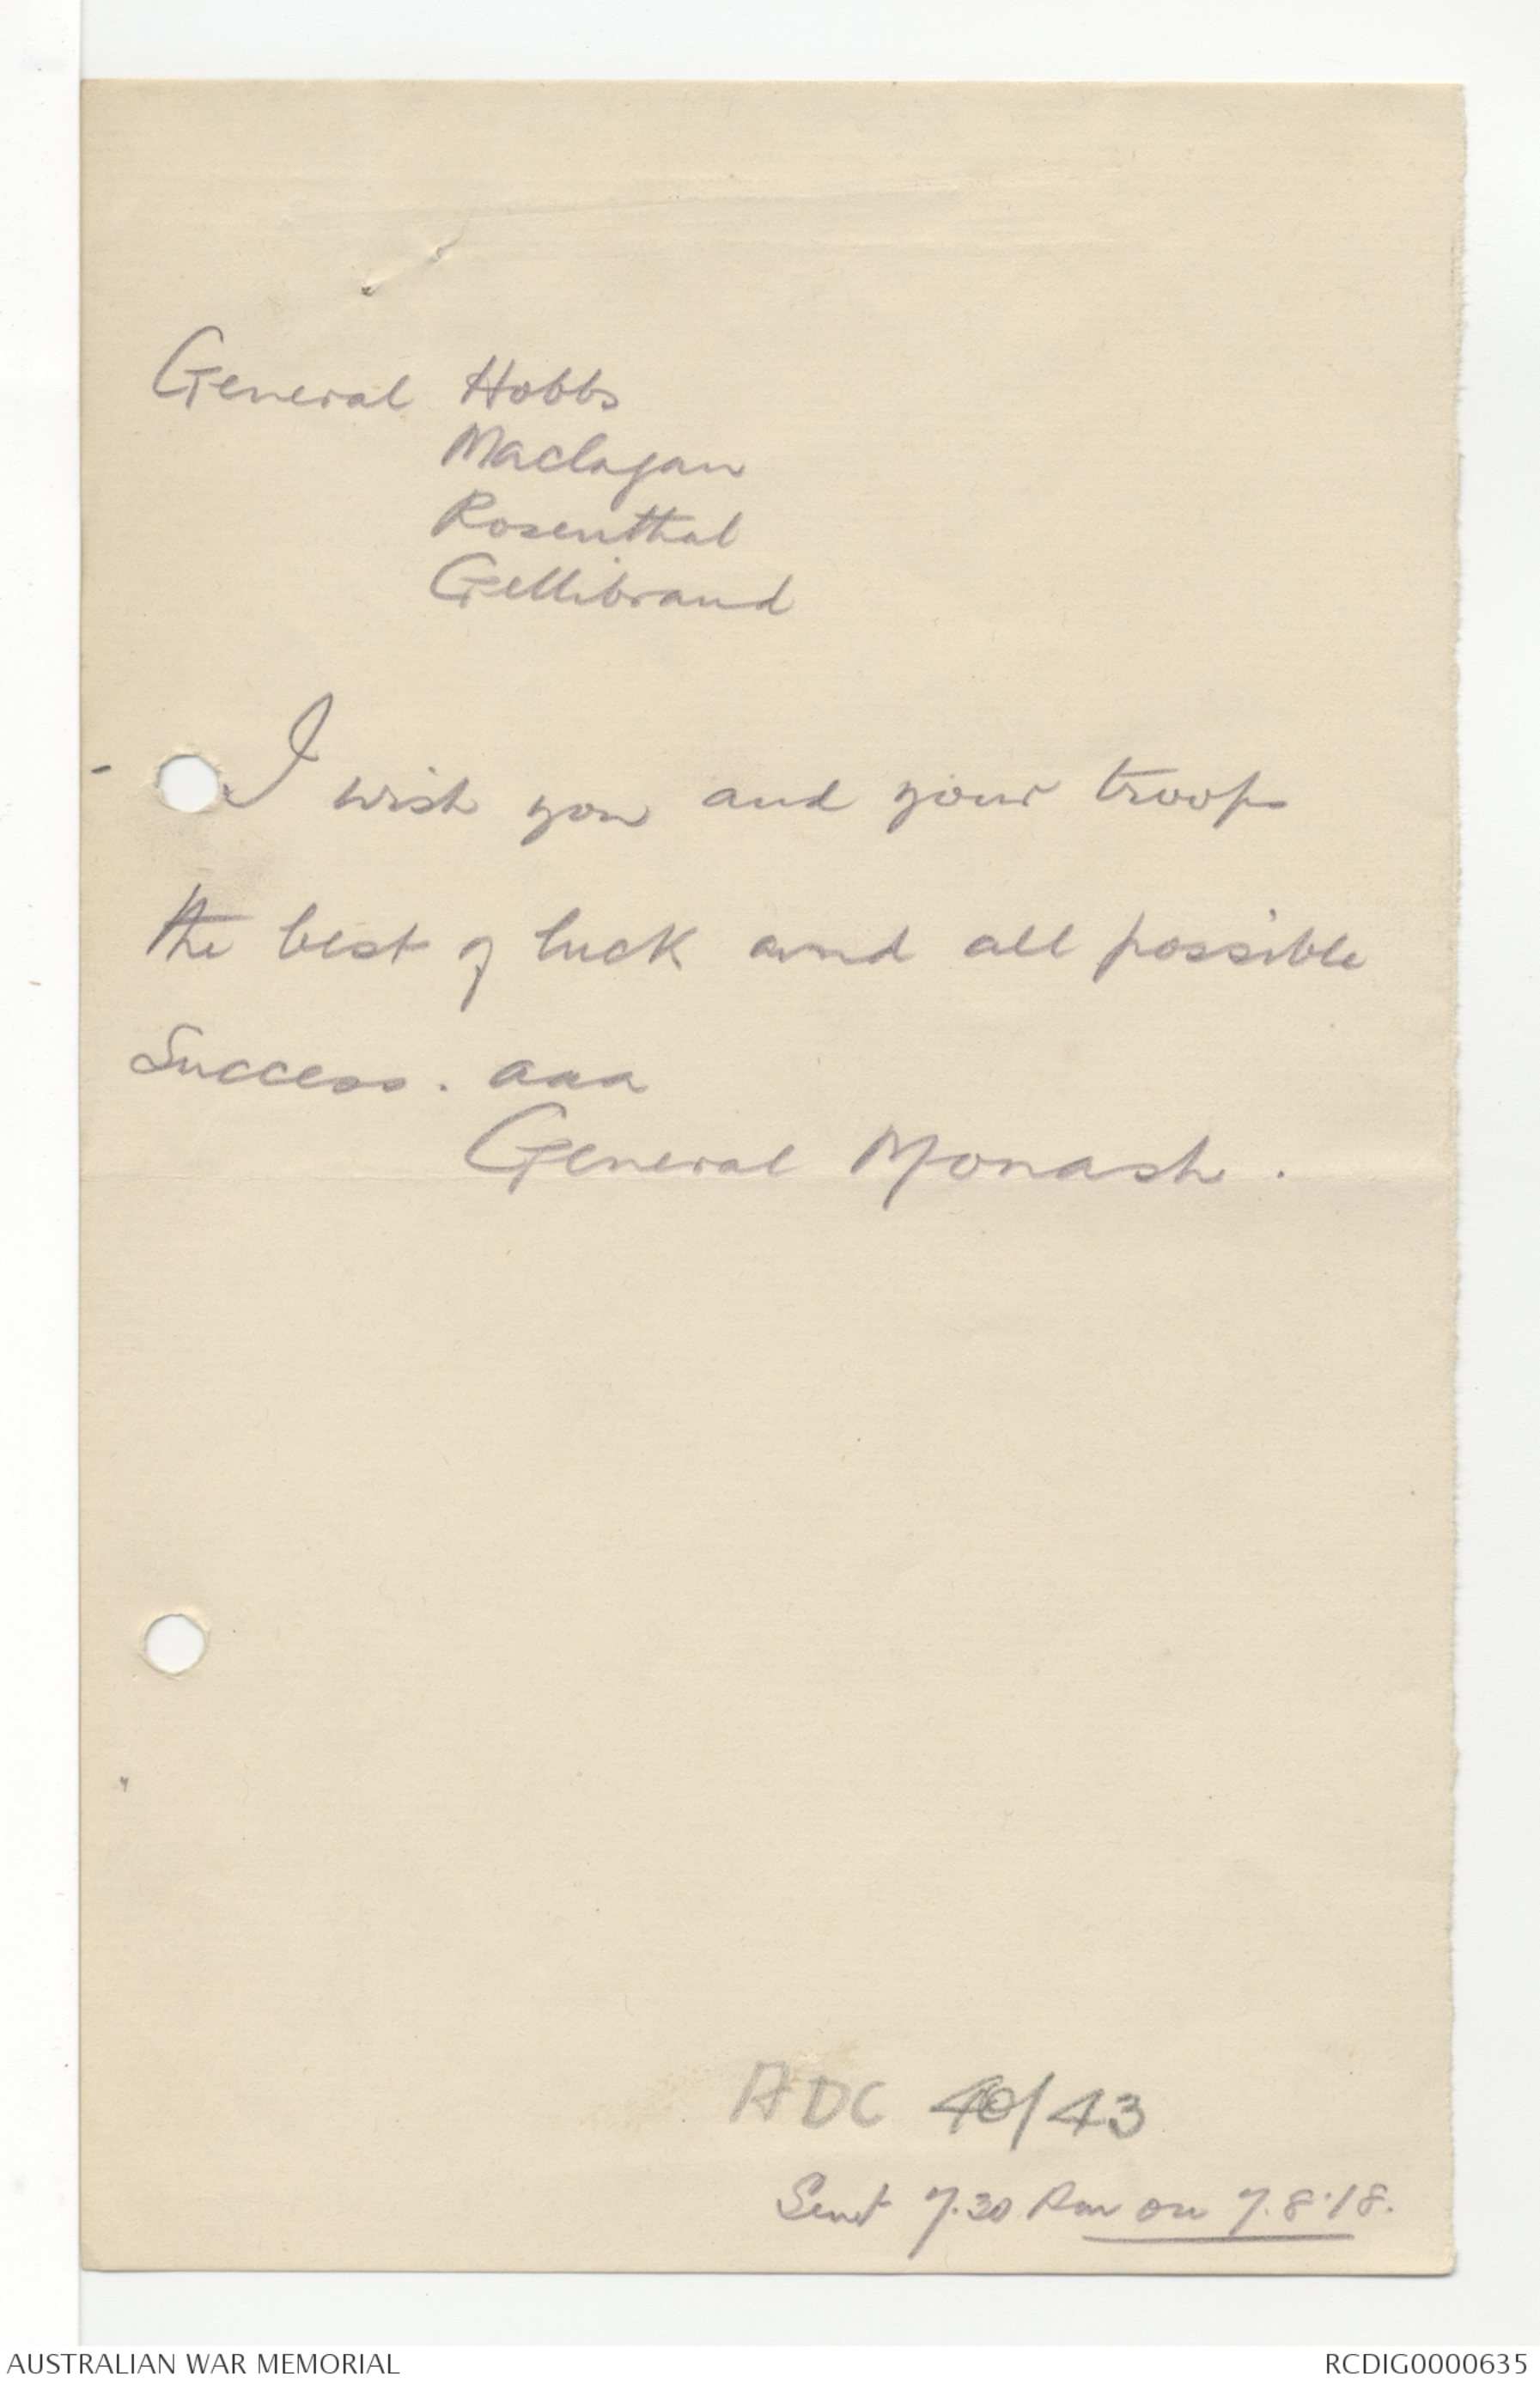 General Hobbs
Maclagan
Rosenthal
Gellibrand
I wish you and your troops
the best of luck and all possible
Success. aaa
General Monash.
ADC 40/43
Sent 7.30 Pm on 7.8.18.
AUSTRALIAN WAR MEMORIAL
RCDIG0000635